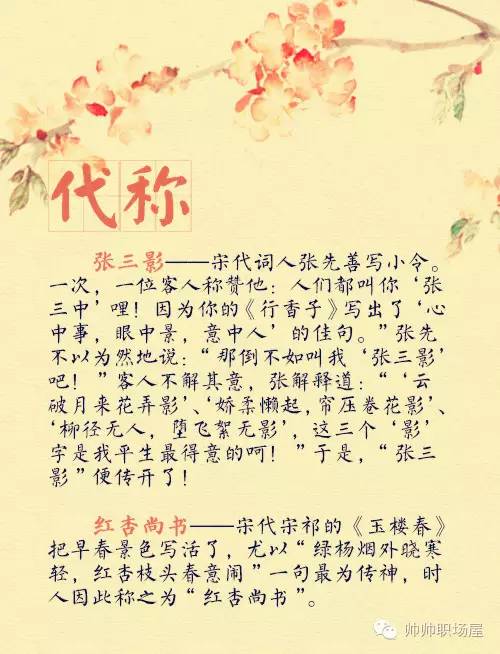 代称
张三影——宋代词人张先善写小令。
一次，一位客人称赞他：人们都叫你‘张
三中’哩！因为你的《行香子》写出了‘心
中事，眼中景，意中人’的佳句。”张先
不以为然地说：“那倒不如叫我‘张三影’
吧！”客人不解其意，张解释道：“‘云
破月来花弄影’、‘娇柔懒起，帘压卷花影’、
‘柳径无人，堕飞絮无影’，这三个‘影’
字是我平生最得意的呵！”于是，“张三
影”便传开了！
红杏尚书——宋代宋祁的《玉楼春》
把早春景色写活了，尤以“绿杨烟外晓寒
轻，红杏枝头春意闹”一句最为传神，时
人因此称之为“红杏尚书”。
帅帅职场屋